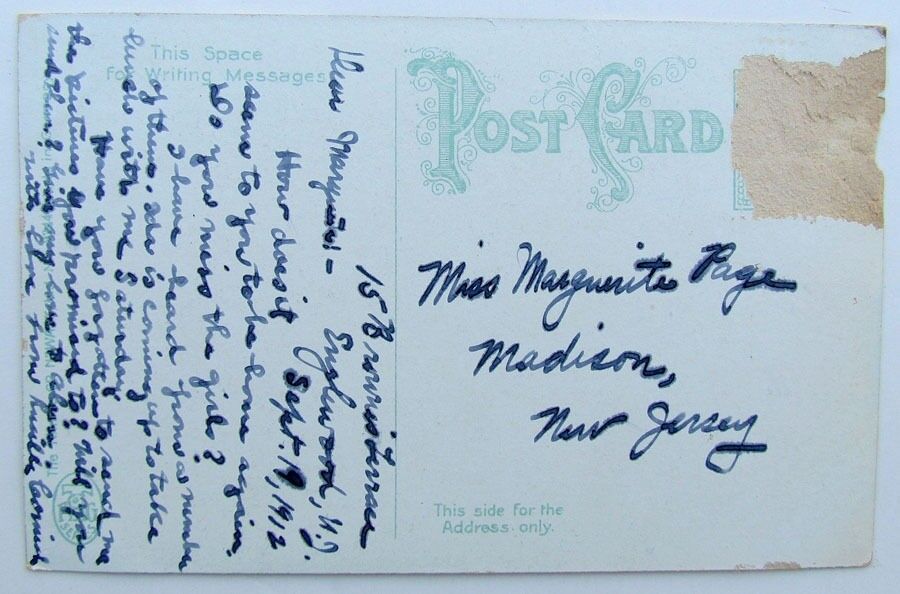 This Space
for Writing Messages
POST CARD
15 Brownes Terrace
Englewood, N.J.
Sept. 19, 1912
Dear Marguerite! -
How does it
seem to you to be home again.
Do you miss the girls?
I have heard from a number
of them. is coming up to take
lunch with me Saturday.
Have you forgotten to send me
the pictures you promised to? Will you
send them? Give my love to
with love from Cornish
Miss Marguerite Page
Madison,
New Jersey
This side for the
Address only.